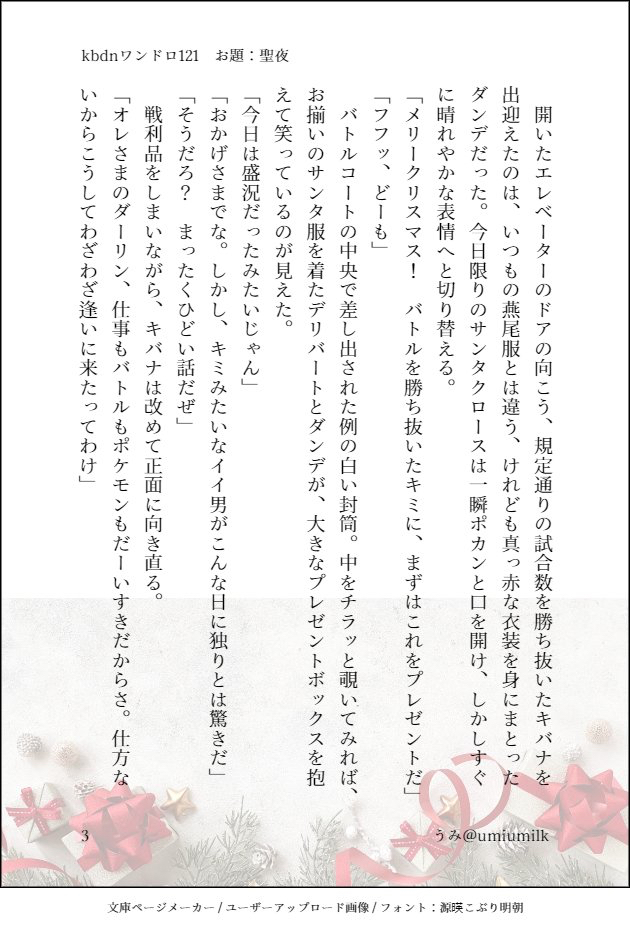 kbdnワンドロ121　お題：聖夜
　開いたエレベーターのドアの向こう、規定通りの試合数を勝ち抜いたキバナを
出迎えたのは、いつもの燕尾服とは違う、けれども真っ赤な衣装を身にまとった
ダンデだった。今日限りのサンタクロースは一瞬ポカンと口を開け、しかしすぐ
に晴れやかな表情へと切り替える。
「メリークリスマス！　バトルを勝ち抜いたキミに、まずはこれをプレゼントだ」
「フフッ、どーも」
　バトルコートの中央で差し出された例の白い封筒。中をチラッと覗いてみれば、
お揃いのサンタ服を着たデリバートとダンデが、大きなプレゼントボックスを抱
えて笑っているのが見えた。
「今日は盛況だったみたいじゃん」
「おかげさまでな。しかし、キミみたいなイイ男がこんな日に独りとは驚きだ」
「そうだろ？　まったくひどい話だぜ」
　戦利品をしまいながら、キバナは改めて正面に向き直る。
「オレさまのダーリン、仕事もバトルもポケモンもだーいすきだからさ。仕方な
いからこうしてわざわざ逢いに来たってわけ」
3
うみ@umiumilk
文庫ページメーカー / ユーザーアップロード画像 / フォント：源暎こぶり明朝